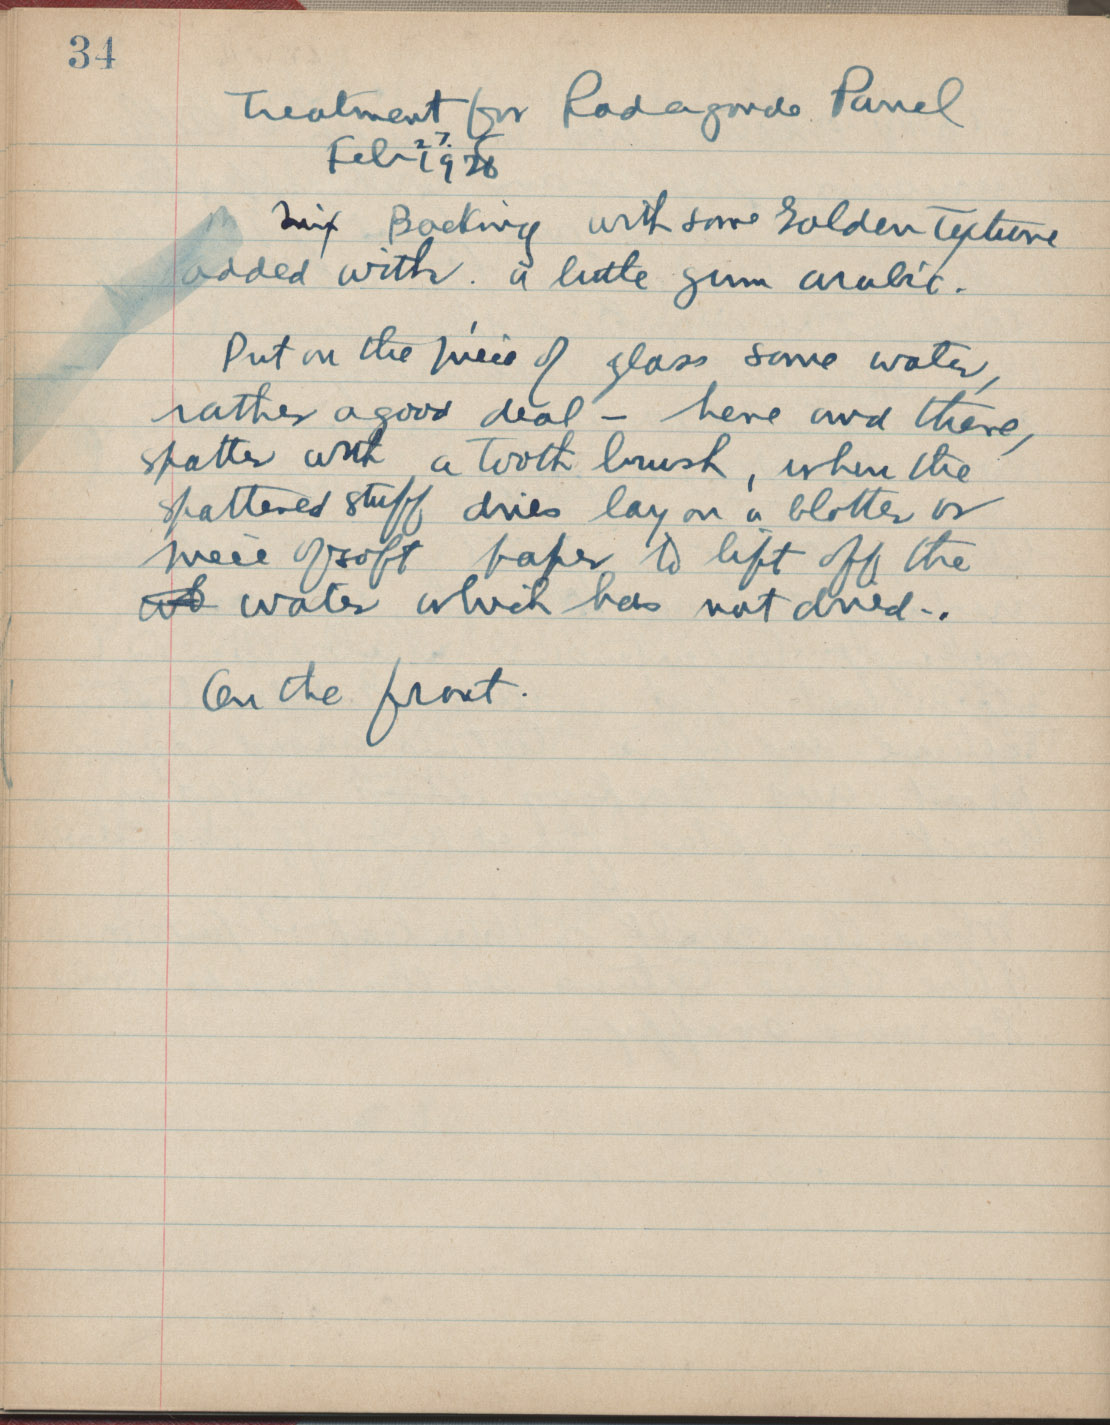 34
Treatment for Radagonde Panel
Feb 27. 1928
Mix Backing with some Golden Texture
added with. a little gum arabic.
Put on the piece of glass some water,
rather a good deal – here and there,
spatter with a tooth brush, when the
spattered stuff dries lay on a blotter or
piece of soft paper to lift off the
water which has not dried-.
On the front.